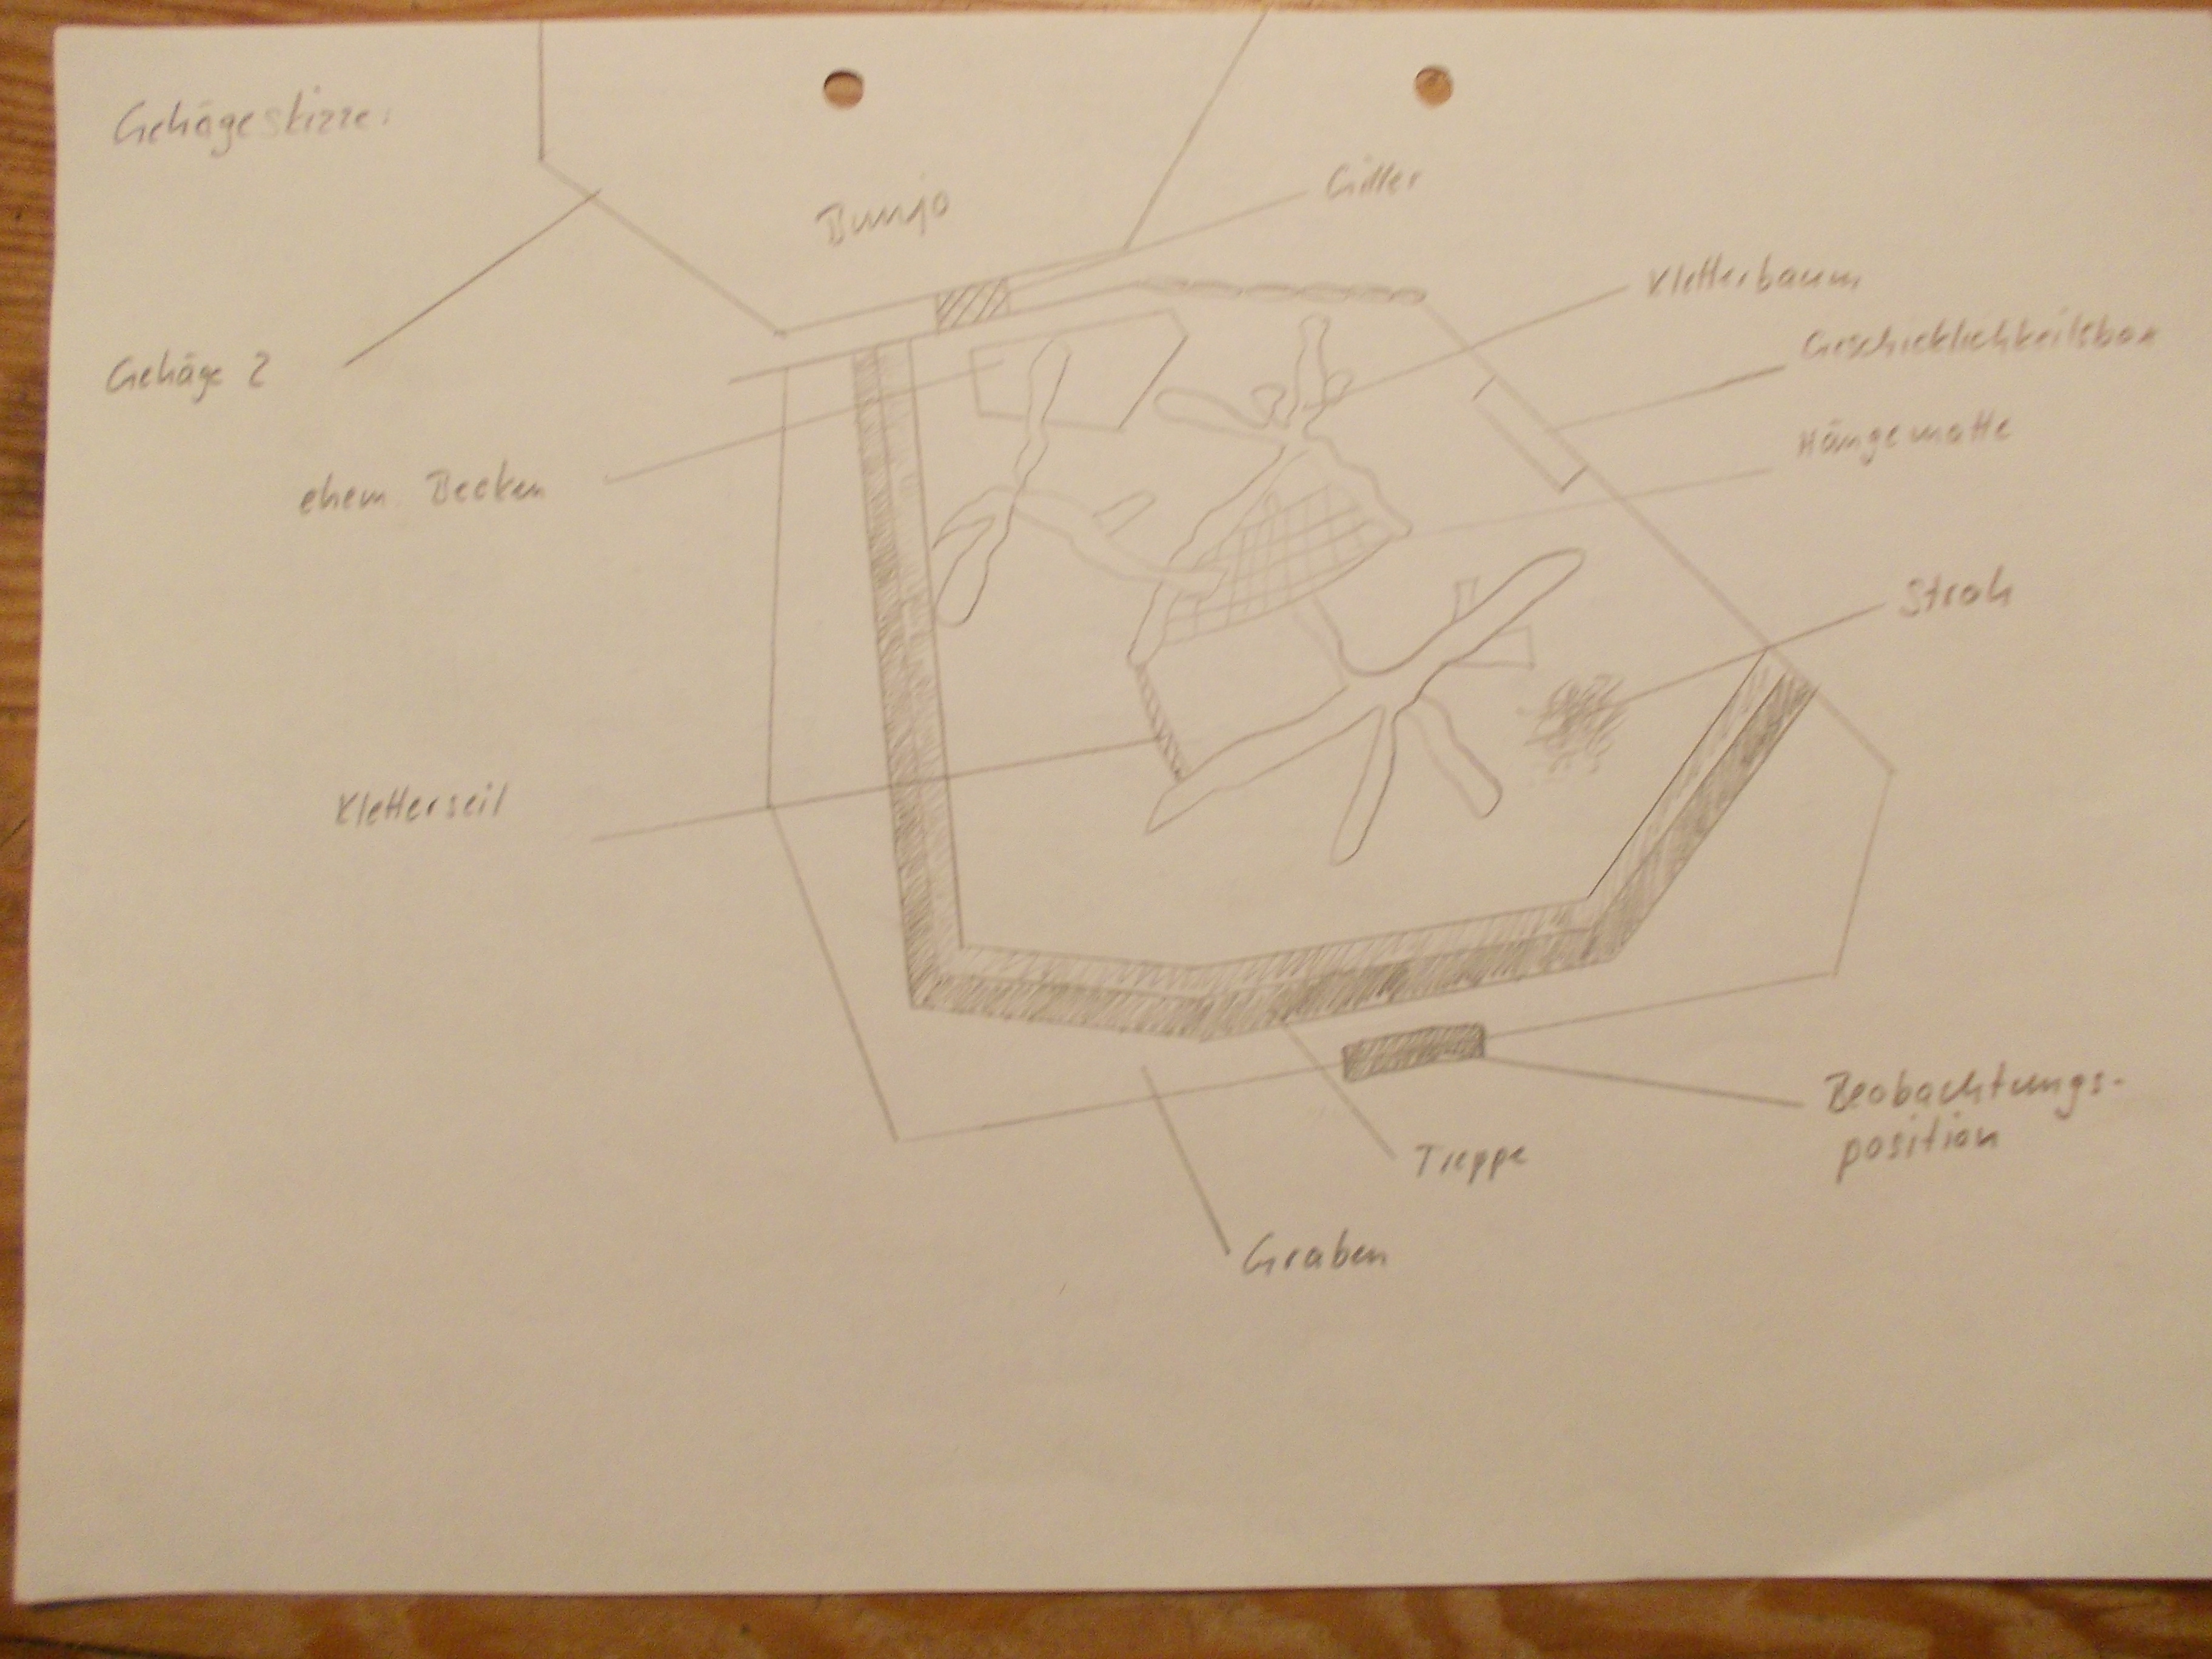 Gehägeskizze:
Bunjo
Gitter
Kletterbaum
Geschicklichkeitsbox
Gehäge 2
Hängematte
ehem. Becken
Stroh
Kletterseil
Beobachtungs-
position
Treppe
Graben